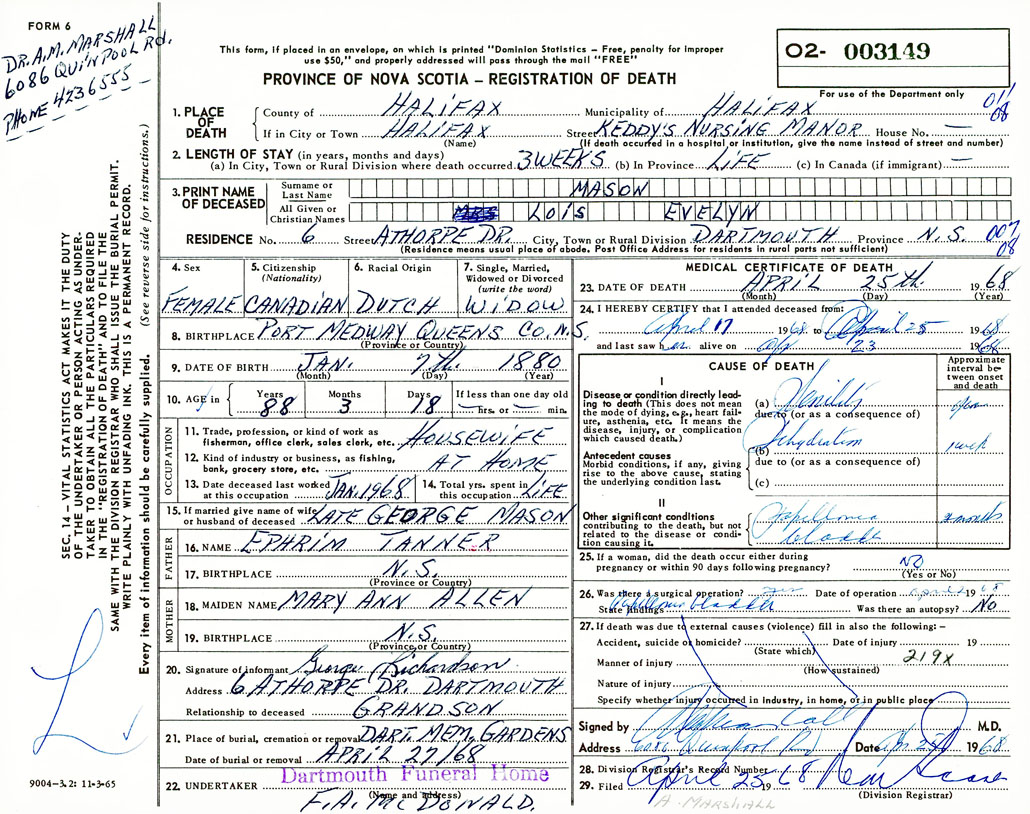 FORM 6
DR. A.M. MARSHALL
6086 QUINPOOL RD.
PHONE 4236555
This form, if placed in an envelope, on which is printed "Dominion Statistics – Free, penalty for improper
use $50," and properly addressed will pass through the mail "FREE"
PROVINCE OF NOVA SCOTIA – REGISTRATION OF DEATH
O2- 003149
For use of the Department only
SEC. 14 – VITAL STATISTICS ACT MAKES IT THE DUTY
OF THE UNDERTAKER OR PERSON ACTING AS UNDER-
TAKER TO OBTAIN ALL THE PARTICULARS REQUIRED
IN THE "REGISTRATION OF DEATH" AND TO FILE THE
SAME WITH THE DIVISION REGISTRAR WHO SHALL ISSUE THE BURIAL PERMIT.
WRITE PLAINLY WITH UNFADING INK. THIS IS A PERMANENT RECORD.
Every item of information should be carefully supplied. (See reverse side for instructions.)
1. PLACE OF DEATH
County of HALIFAX Municipality of HALIFAX
If in City or Town HALIFAX Street KEDDY'S NURSING MANOR House No. —
(Name) (If death occurred in a hospital or institution, give the name instead of street and number)
2. LENGTH OF STAY (in years, months and days)
(a) In City, Town or Rural Division where death occurred 3 WEEKS (b) In Province LIFE (c) In Canada (if immigrant) —
3. PRINT NAME OF DECEASED
Surname or Last Name MASON
All Given or Christian Names LOIS EVELYN
RESIDENCE No. 6 Street ATHORPE DR. City, Town or Rural Division DARTMOUTH Province N.S. 007 08
(Residence means usual place of abode. Post Office Address for residents in rural parts not sufficient)
4. Sex FEMALE
5. Citizenship (Nationality) CANADIAN
6. Racial Origin DUTCH
7. Single, Married, Widowed or Divorced (write the word) WIDOW
8. BIRTHPLACE PORT MEDWAY QUEENS CO. N.S.
(Province or Country)
9. DATE OF BIRTH JAN. 7th. 1880
(Month) (Day) (Year)
10. AGE in Years 88 Months 3 Days 18 If less than one day old — hrs. or — min.
OCCUPATION
11. Trade, profession, or kind of work as fisherman, office clerk, sales clerk, etc. HOUSEWIFE
12. Kind of industry or business, as fishing, bank, grocery store, etc. AT HOME
13. Date deceased last worked at this occupation JAN. 1968
14. Total yrs. spent in this occupation LIFE
15. If married give name of wife or husband of deceased LATE GEORGE MASON
FATHER
16. NAME EPHRIM TANNER
17. BIRTHPLACE N.S.
(Province or Country)
MOTHER
18. MAIDEN NAME MARY ANN ALLEN
19. BIRTHPLACE N.S.
(Province, or Country)
20. Signature of informant George Richardson
Address 6 ATHORPE DR. DARTMOUTH
Relationship to deceased GRANDSON
21. Place of burial, cremation or removal DART. MEM. GARDENS
Date of burial or removal APRIL 27/68
Dartmouth Funeral Home
22. UNDERTAKER F.A. McDONALD.
(Name and address)
9004–3.2: 11-3-65
MEDICAL CERTIFICATE OF DEATH
23. DATE OF DEATH APRIL 25th. 1968
(Month) (Day) (Year)
24. I HEREBY CERTIFY that I attended deceased from:
April 17 1968 to April 25 1968
and last saw her alive on 23 1968
CAUSE OF DEATH
Approximate interval between onset and death
I
Disease or condition directly leading to death (This does not mean the mode of dying, e.g., heart failure, asthenia, etc. It means the disease, injury, or complication which caused death.)
(a) Senility
due to (or as a consequence of)
Antecedent causes
Morbid conditions, if any, giving rise to the above cause, stating the underlying condition last.
(b) Dehydration 1 week
due to (or as a consequence of)
(c)
II
Other significant conditions contributing to the death, but not related to the disease or condition causing it.
Papilloma bladder months
25. If a woman, did the death occur either during pregnancy or within 90 days following pregnancy? NO
(Yes or No)
26. Was there a surgical operation? Date of operation April 1968
State findings Papilloma bladder Was there an autopsy? NO
27. If death was due to external causes (violence) fill in also the following: –
Accident, suicide or homicide? Date of injury 19
(State which)
Manner of injury 219X
(How sustained)
Nature of injury
Specify whether injury occurred in industry, in home, or in public place
Signed by M.D.
Address 6086 Quinpool Rd Date Apr 25 1968
28. Division Registrar's Record Number
29. Filed April 25 1968
(Division Registrar)
A. MARSHALL